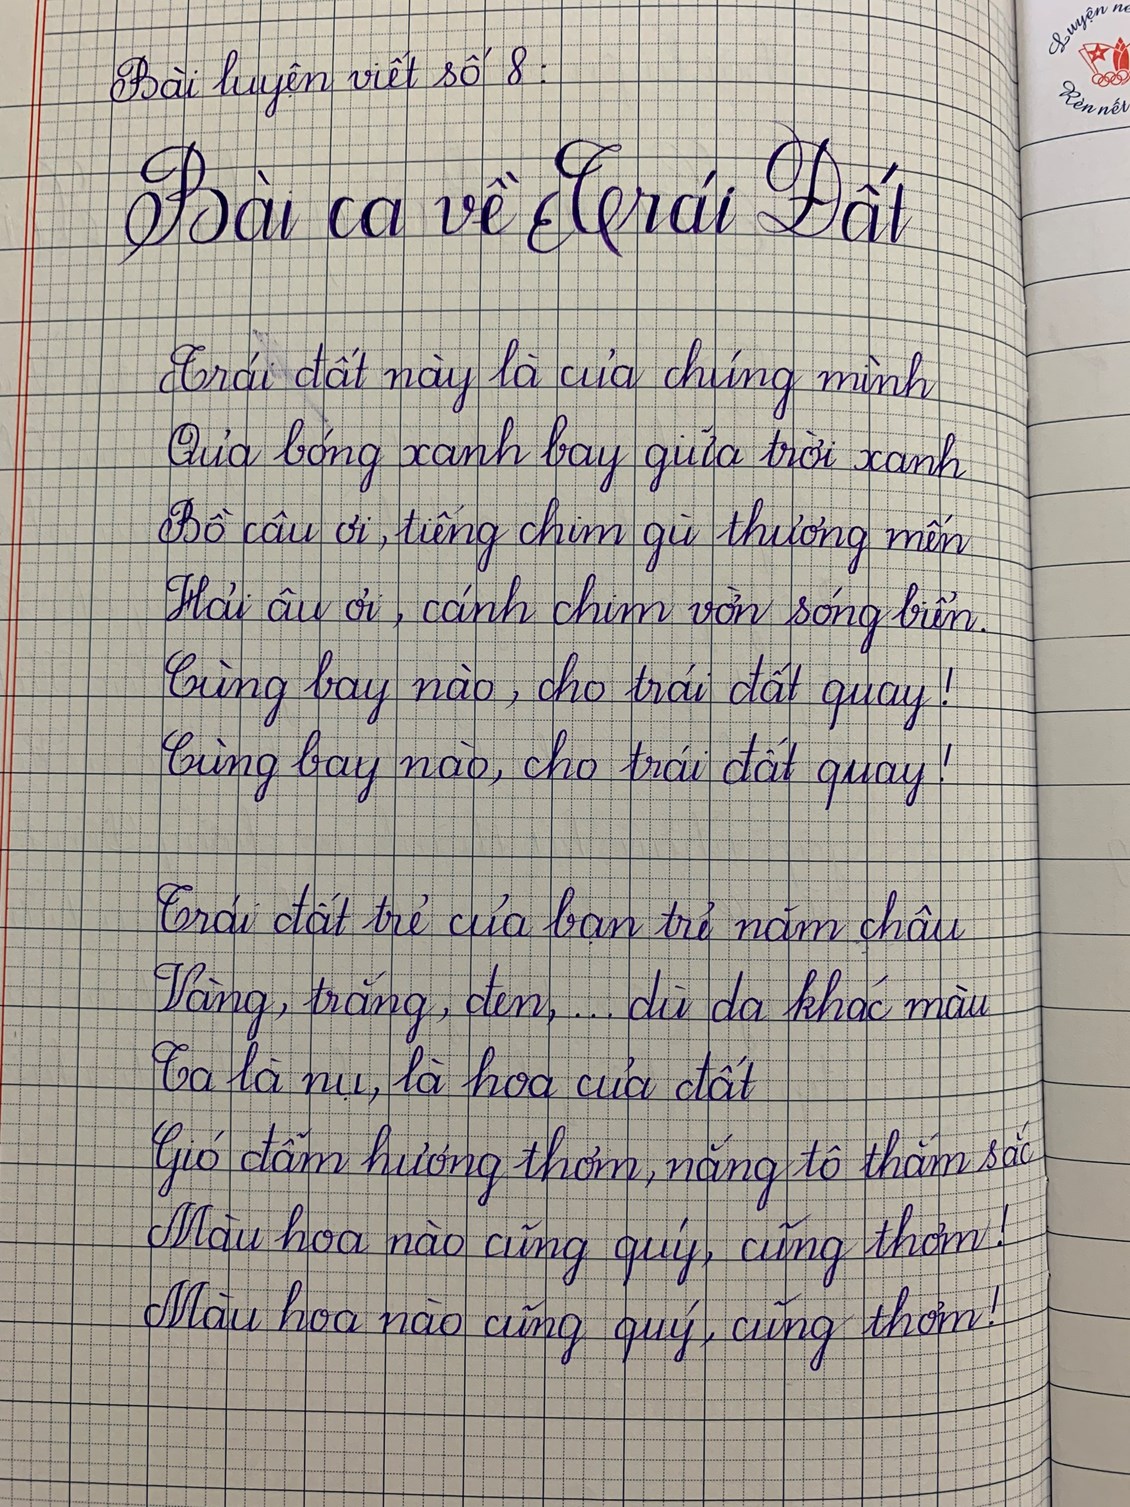 Bài luyện viết số 8:
Bài ca về Trái Đất
Trái đất này là của chúng mình
Quả bóng xanh bay giữa trời xanh
Bồ câu ơi, tiếng chim gù thương mến
Hải âu ơi, cánh chim vờn sóng biển.
Cùng bay nào, cho trái đất quay!
Cùng bay nào, cho trái đất quay!
Trái đất trẻ của bạn trẻ năm châu
Vàng, trắng, đen,... dù da khác màu
Ta là nụ, là hoa của đất
Gió đẫm hương thơm, nắng tô thắm sắc
Màu hoa nào cũng quý, cũng thơm!
Màu hoa nào cũng quý, cũng thơm!
Luyện
Rèn